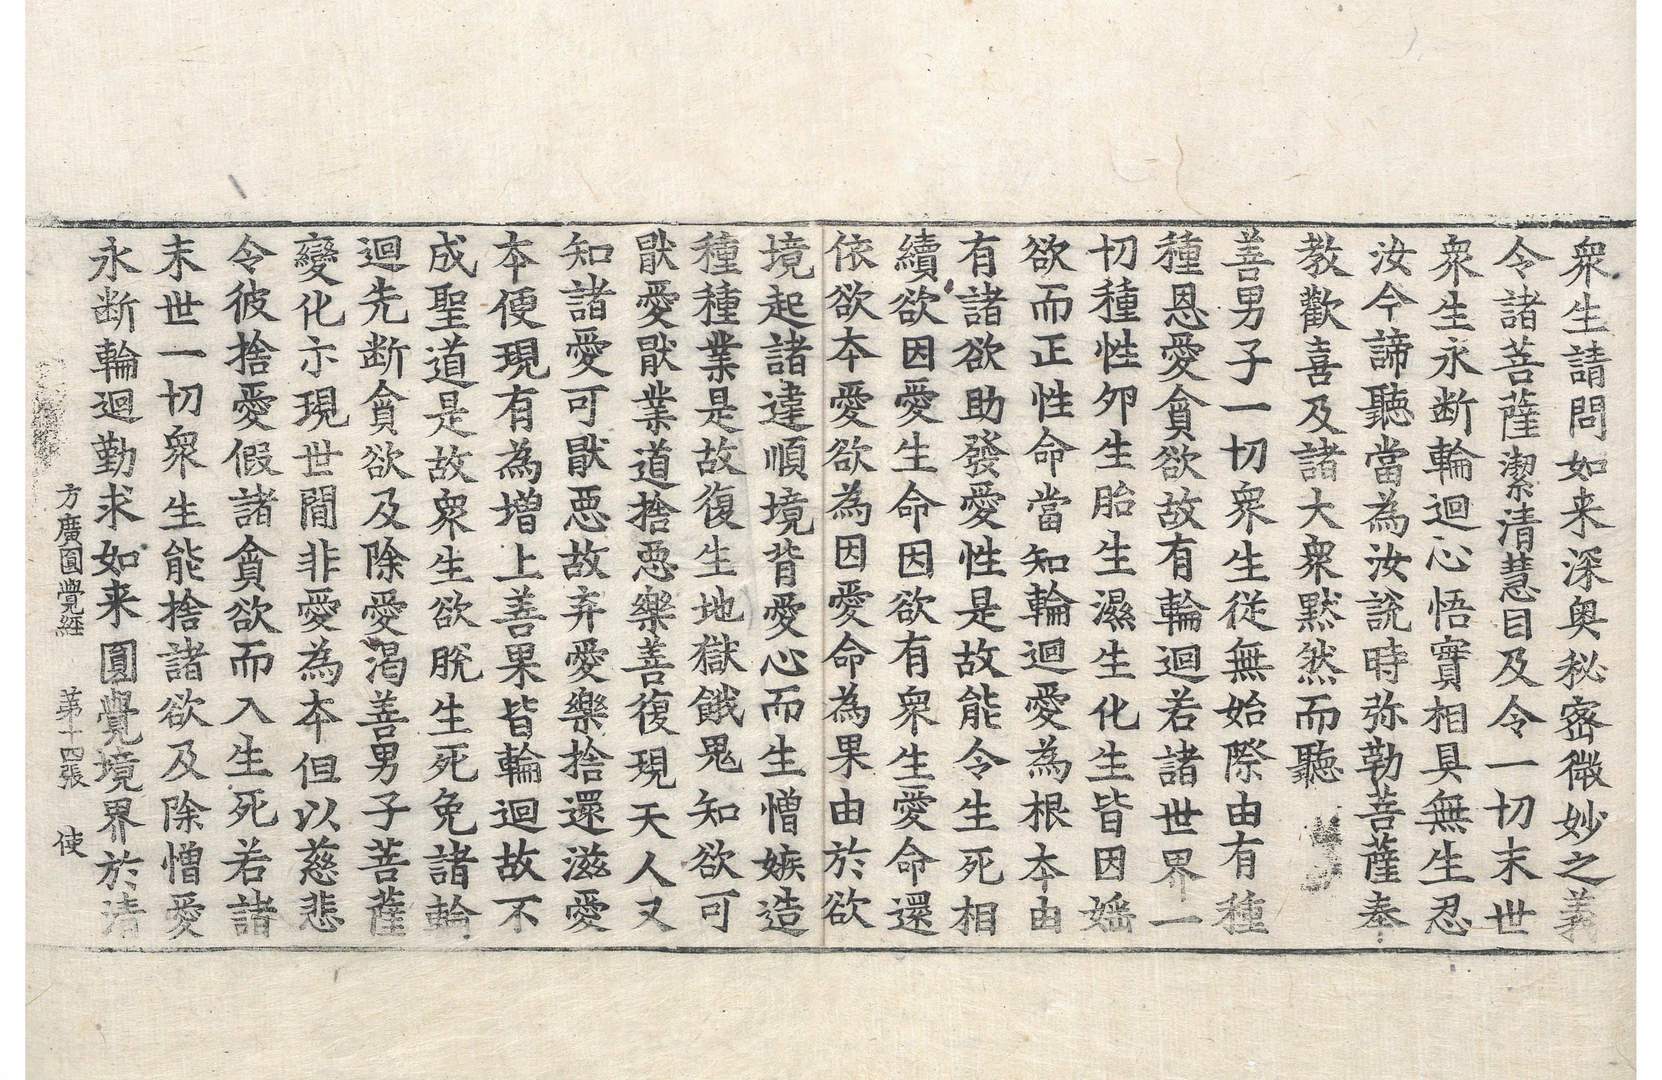 衆生請問如来深奥秘密微妙之義
令諸菩薩潔清慧目及令一切末世
衆生永断輪迴心悟實相具無生忍
汝今諦聽當為汝說時弥勒菩薩奉
教歡喜及諸大衆黙然而聽
善男子一切衆生従無始際由有種
種恩愛貪欲故有輪迴若諸世界一
切種性夘生胎生濕生化生皆因婬
欲而正性命當知輪迴愛為根本由
有諸欲助發愛性是故能令生死相
續欲因愛生命因欲有衆生愛命還
依欲本愛欲為因愛命為果由於欲
境起諸違順境背愛心而生憎嫉造
種種業是故復生地獄餓鬼知欲可
猒愛猒業道捨惡樂善復現天人又
知諸愛可猒惡故弃愛樂捨還滋愛
本便現有為增上善果皆輪迴故不
成聖道是故衆生欲脫生死免諸輪
迴先断貪欲及除愛渴善男子菩薩
變化示現世間非愛為本但以慈悲
令彼捨愛假諸貪欲而入生死若諸
末世一切衆生能捨諸欲及除憎愛
永断輪迴勤求如来圓覺境界於清
方廣圓覺経 第十四張 使